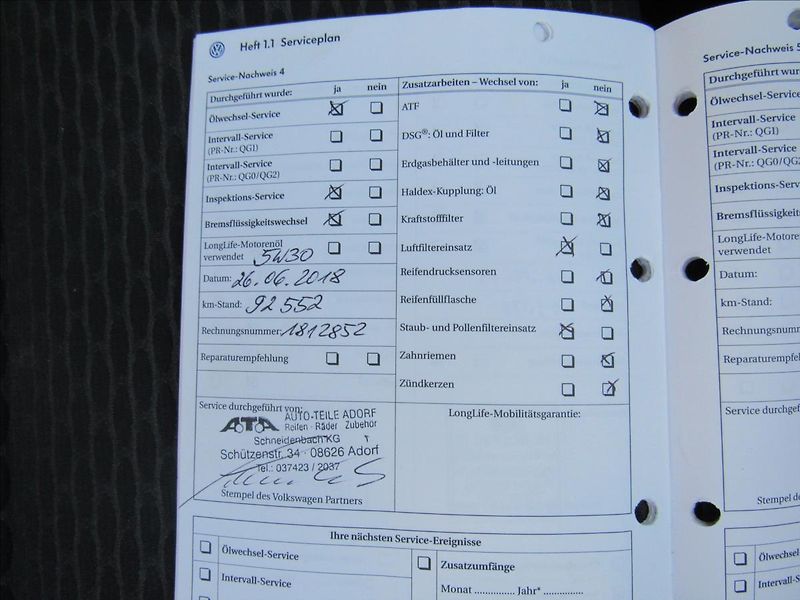 Heft 1.1 Serviceplan
Service-Nachweis 4
Durchgeführt wurde: ja nein
Ölwechsel-Service
Intervall-Service
(PR-Nr.: QG1)
Intervall-Service
(PR-Nr.: QG0/QG2)
Inspektions-Service
Bremsflüssigkeitswechsel
LongLife-Motorenöl
verwendet 5W30
Datum: 26.06.2018
km-Stand: 92 552
Rechnungsnummer: 1812852
Reparaturempfehlung
Service durchgeführt von:
ATA AUTO-TEILE ADORF
Reifen · Räder Zubehör
Schneidenbach KG
Schützenstr. 34 · 08626 Adorf
Tel.: 037423 / 2037
Stempel des Volkswagen Partners
Zusatzarbeiten – Wechsel von: ja nein
ATF
DSG®: Öl und Filter
Erdgasbehälter und -leitungen
Haldex-Kupplung: Öl
Kraftstofffilter
Luftfiltereinsatz
Reifendrucksensoren
Reifenfüllflasche
Staub- und Pollenfiltereinsatz
Zahnriemen
Zündkerzen
LongLife-Mobilitätsgarantie:
Ihre nächsten Service-Ereignisse
Ölwechsel-Service
Intervall-Service
Zusatzumfänge
Monat .............. Jahr* ..............
Service-Nachweis 5
Durchgeführt wur
Ölwechsel-Service
Intervall-Service
(PR-Nr.: QG1)
Intervall-Service
(PR-Nr.: QG0/QG2
Inspektions-Serv
Bremsflüssigkeits
LongLife-Motoren
verwendet
Datum:
km-Stand:
Rechnungsnumm
Reparaturempfe
Service durchgef
Stempel d
Ölwechsel
Intervall-S